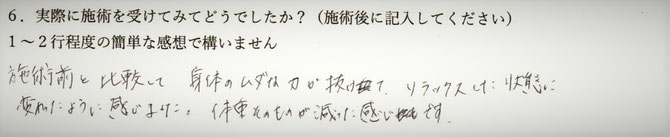 6．実際に施術を受けてみてどうでしたか？（施術後に記入してください）
1～2行程度の簡単な感想で構いません
施術前と比較して、身体のムダな力が抜けて、リラックスした状態に
変れたように感じました。体重そのものが減った感じです。